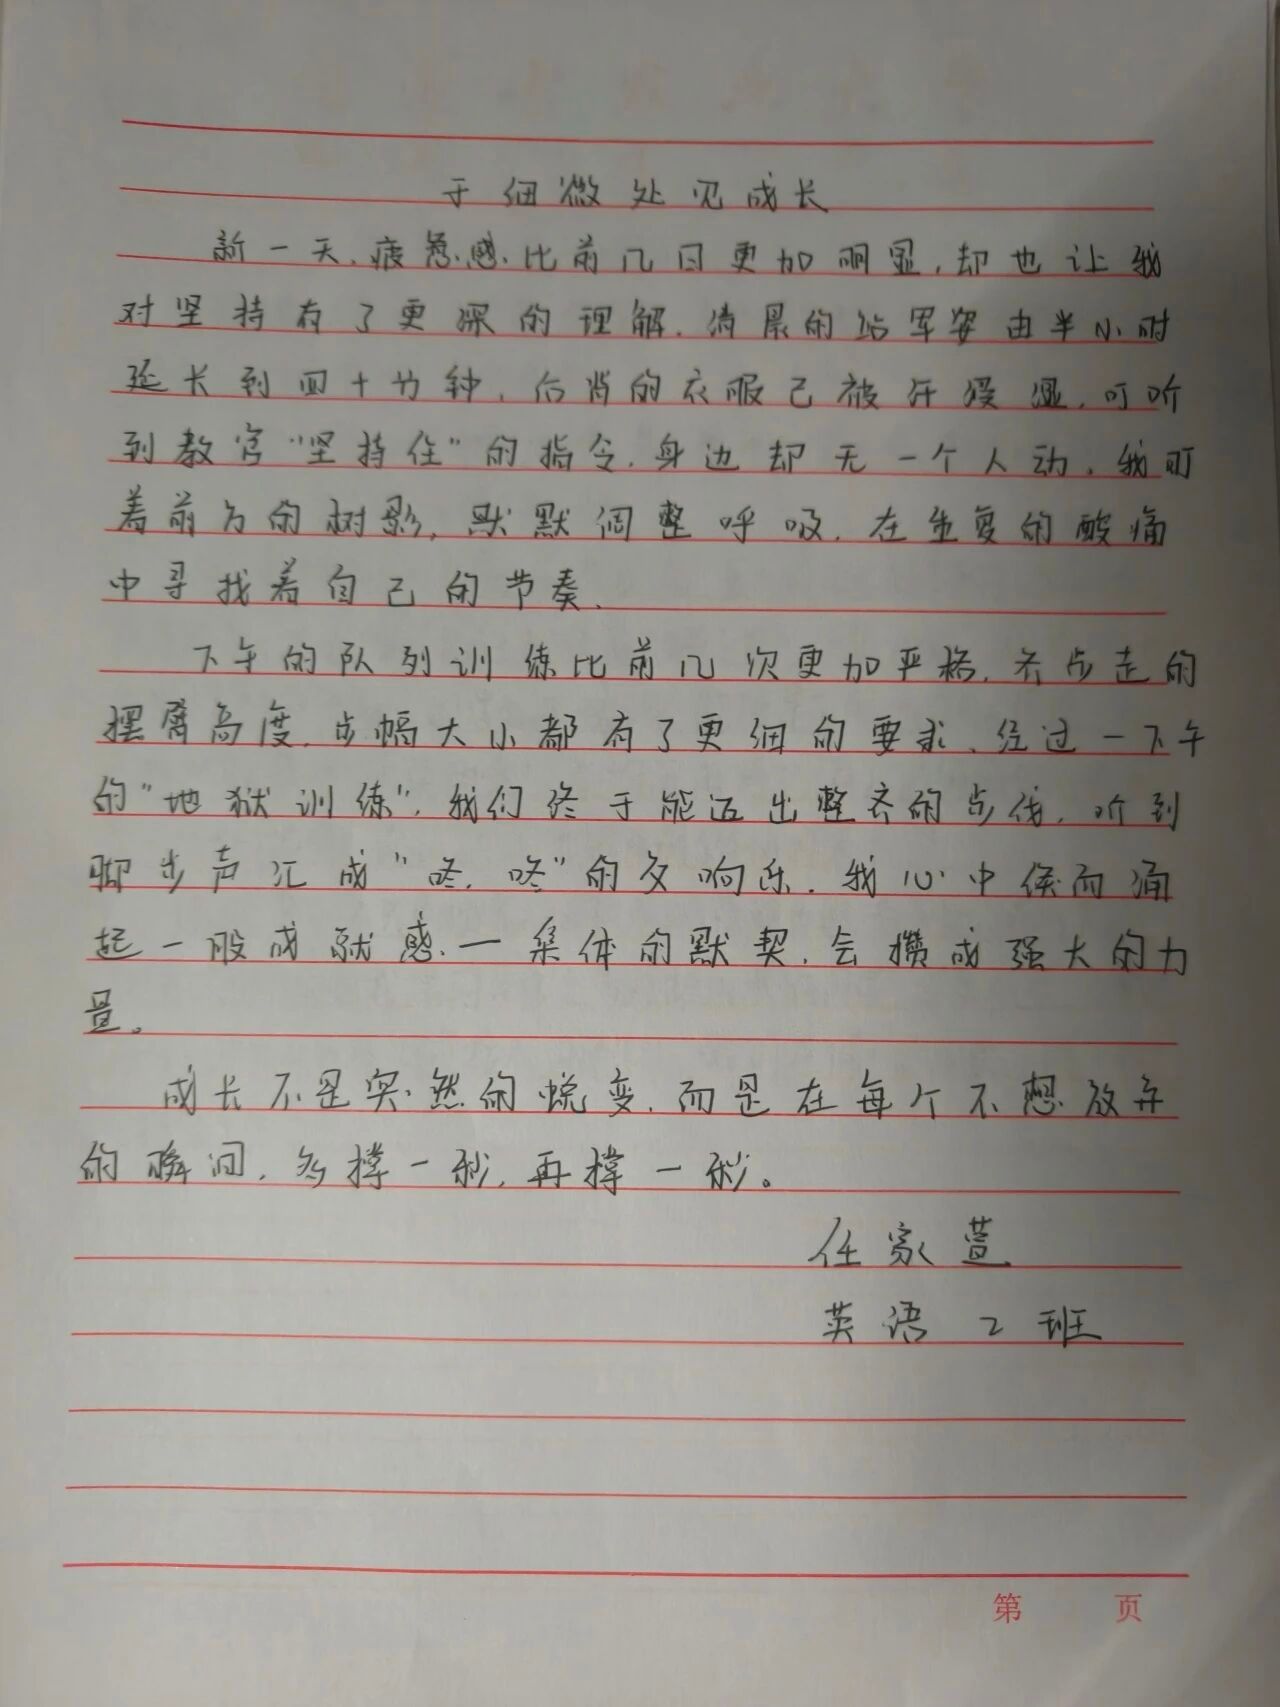 于细微处见成长
新一天,疲惫感比前几日更加明显,却也让我
对坚持有了更深的理解.清晨的站军姿由半小时
延长到四十分钟,后背的衣服已被汗浸湿.可听
到教官“坚持住”的指令.身边却无一个人动.我盯
着前方的树影,默默调整呼吸.在重复的酸痛
中寻找着自己的节奏.
下午的队列训练比前几次更加严格.齐步走的
摆臂高度.步幅大小都有了更细的要求.经过一下午
的“地狱训练”.我们终于能迈出整齐的步伐.听到
脚步声汇成“咚.咚”的交响乐.我心中倏而涌
起一股成就感.一集体的默契.会攒成强大的力
量。
成长不是突然的蜕变.而是在每个不想放弃
的瞬间,多撑一秒,再撑一秒。
任家萱
英语2班
第 页